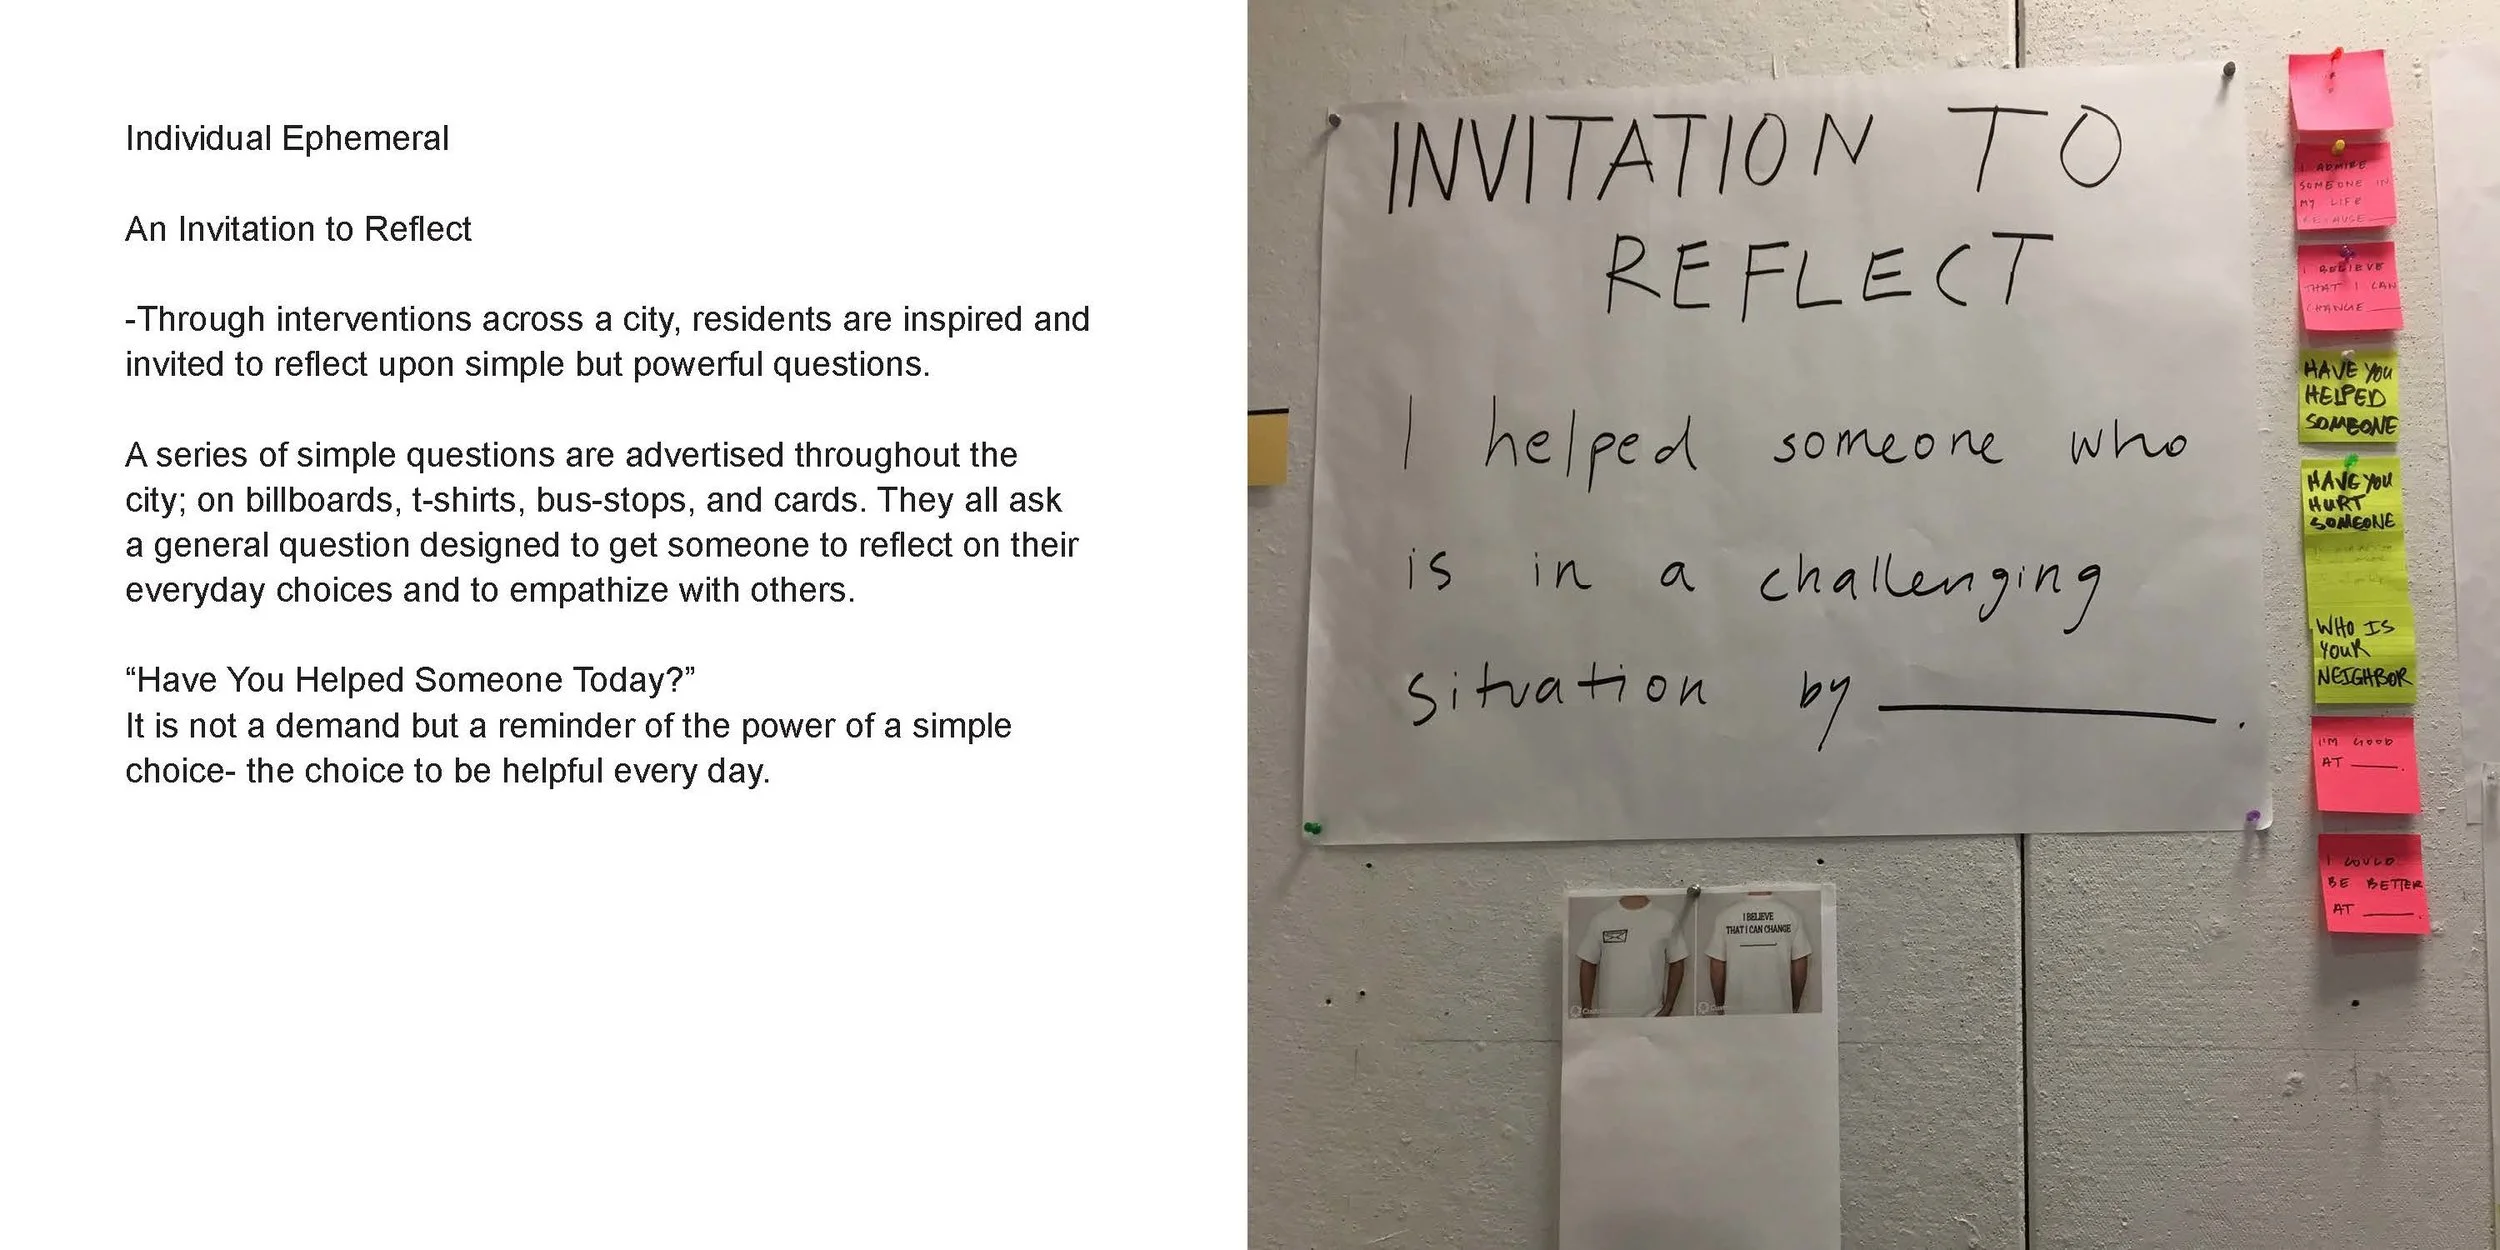 Individual Ephemeral
An Invitation to Reflect
-Through interventions across a city, residents are inspired and
invited to reflect upon simple but powerful questions.
A series of simple questions are advertised throughout the
city; on billboards, t-shirts, bus-stops, and cards. They all ask
a general question designed to get someone to reflect on their
everyday choices and to empathize with others.
“Have You Helped Someone Today?”
It is not a demand but a reminder of the power of a simple
choice- the choice to be helpful every day.
INVITATION TO
REFLECT
I helped someone who
is in a challenging
situation by ________.
I ADMIRE
SOMEONE IN
MY LIFE
BECAUSE____
I BELIEVE
THAT I CAN
CHANGE ____
HAVE YOU
HELPED
SOMEONE
HAVE YOU
HURT
SOMEONE
WHO IS
YOUR
NEIGHBOR
I'M GOOD
AT ____.
I COULD
BE BETTER
AT ____.
I BELIEVE
THAT I CAN CHANGE
____